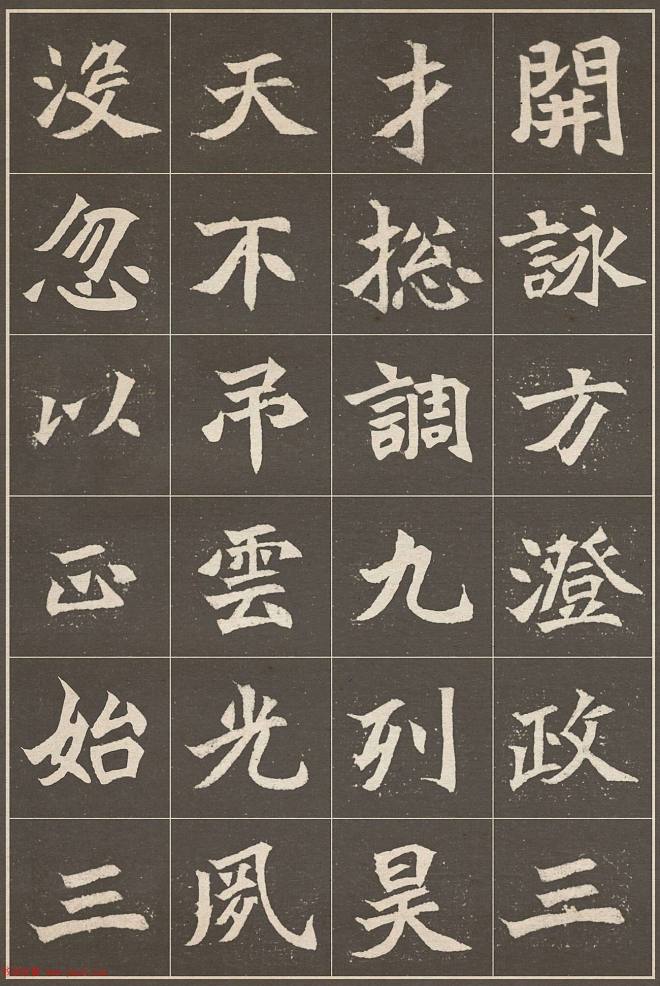 開詠方澄政三
才揔調九列昊
天不吊雲光夙
没忽以正始三